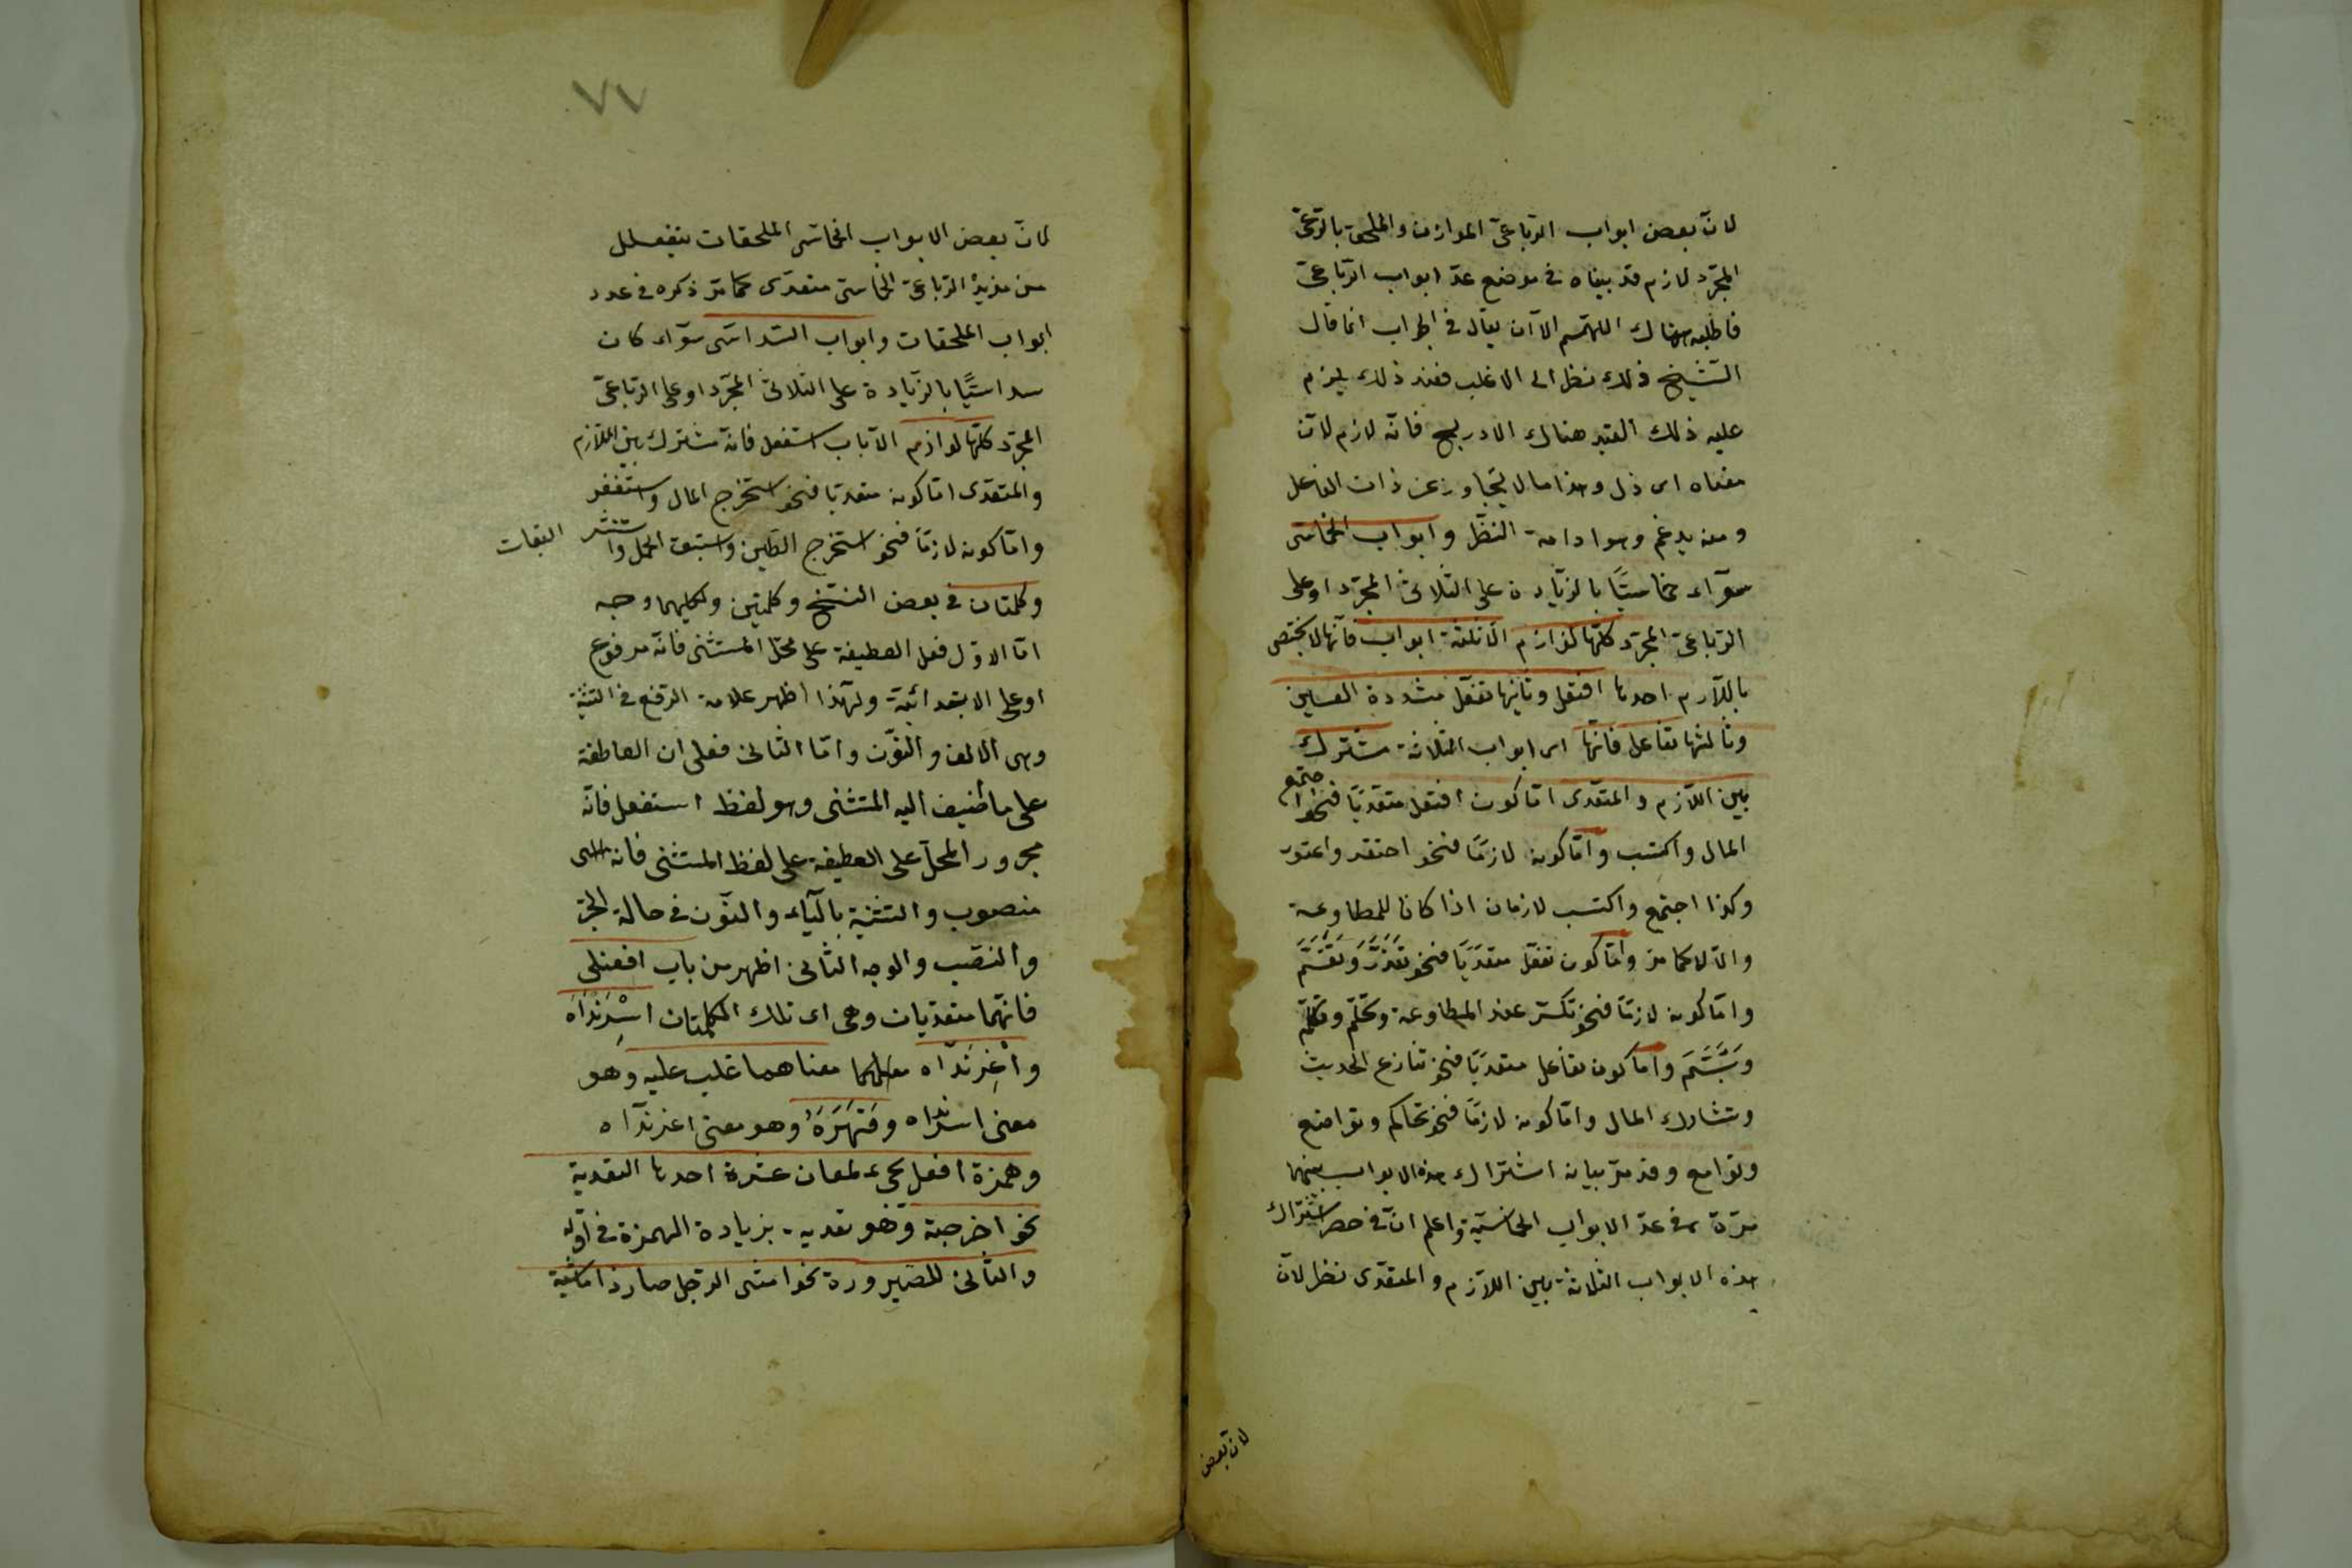 لانّ بعض ابواب الرّباعىّ الموازن والملحق بالرّباعىّ
المجرّد لازم قد بيناه فى موضع عدّ ابواب الرّباعىّ
فاطلبه هناك اللهمّ الاّ ان يقال فى الجواب انما قال
الشّيخ ذلك نظرا الى الاغلب فعند ذلك يلزم
عليه ذلك القيد هناك الا دربح فانّه لازم لانّ
معناه اى ذل وهذا مما لا يتجاوز عن ذات الفاعل
ومنه يدغم وهو ادامة النّظر وابواب الخماسى
سوآء خماسيًّا بالزّيادة على الثلاثىّ المجرّد او على
الرّباعىّ المجرّد كلّها لوازم الاّ ثلثة ابواب فانّها لا يختصّ
باللاّزم احدها افتعل وثانيها تفعّل مشددة العين
وثالثها تفاعل فانّها اى ابواب الثلاثة مشترك
بين اللاّزم والمتعدّى امّا كون افتعل متعدّيًا فنحو اجتمع
المال واكتسب وامّا كونه لازمًا فنحو احتقر واعتور
وكذا اجتمع واكتسب لازمان اذا كانا للمطاوعة
والاّ لا كما مرّ وامّا كون تفعّل متعدّيًا فنحو تعزّز وتقسّم
وامّا كونه لازمًا فنحو تكسّر عند المطاوعة وتحلّم وتكلّم
وتبسّم وامّا كون تفاعل متعدّيًا فنحو تنازع الحديث
وتشارك المال وامّا كونه لازمًا فنحو تحاكم وتواضع
وتوامع وقد مرّ بيان اشتراك هذه الابواب بينهما
مرّة فى عدّ الابواب الخماسيّة واعلم انّ فى حصر اشتراك
هذه الابواب الثلاثة بين اللاّزم والمتعدّى نظرا لانّ
لانّ بعض
٧٦
لانّ بعض الابواب الخماسى الملحقات بتفعلل
من مزيد الرّباعىّ الخماسىّ متعدّى كما مرّ ذكره فى عدد
ابواب الملحقات وابواب السّداسى سوآء كان
سداسيًّا بالزّيادة على الثلاثىّ المجرّد او على الرّباعىّ
المجرّد كلّها لوازم الاّ باب استفعل فانّه مشترك بين اللاّزم
والمتعدّى امّا كونه متعدّيًا فنحو استخرج المال واستغفر
وامّا كونه لازمًا فنحو استحجر الطّين واستنوق الجمل واستنسر البغاث
وكلمتان فى بعض النّسخ وكلمتين ولكليهما وجه
امّا الاوّل فعلى العطيفة على محلّ المستثنى فانّه مرفوع
او على الابتدائيّة ولهذا اظهر علامة الرّفع فى التّثنية
وهى الالف والنّون وامّا الثانى فعلى ان العاطفة
على ما اضيف اليه المستثنى وهو لفظ استفعل فانّه
مجرور المحلّ على العطيفة على لفظ المستثنى فانه
منصوب والتثنية باليآء والنّون فى حالة الجرّ
والنّصب والوجه الثّانى اظهر من باب افعنلى
فانّهما متعدّيان وهى اى تلك الكلمتان اسرنداه
واغرنداه معناهما غلب عليه وهو
معنى اسرنداه وقهره وهو معنى اغرنداه
وهمزة افعل يجىء لمعان عشرة احدها التعدية
نحو اخرجته وهو تعدية بزيادة الهمزة فى اوّله
والثّانى للصّيرورة نحو امشى الرّجل صار ذا ماشية